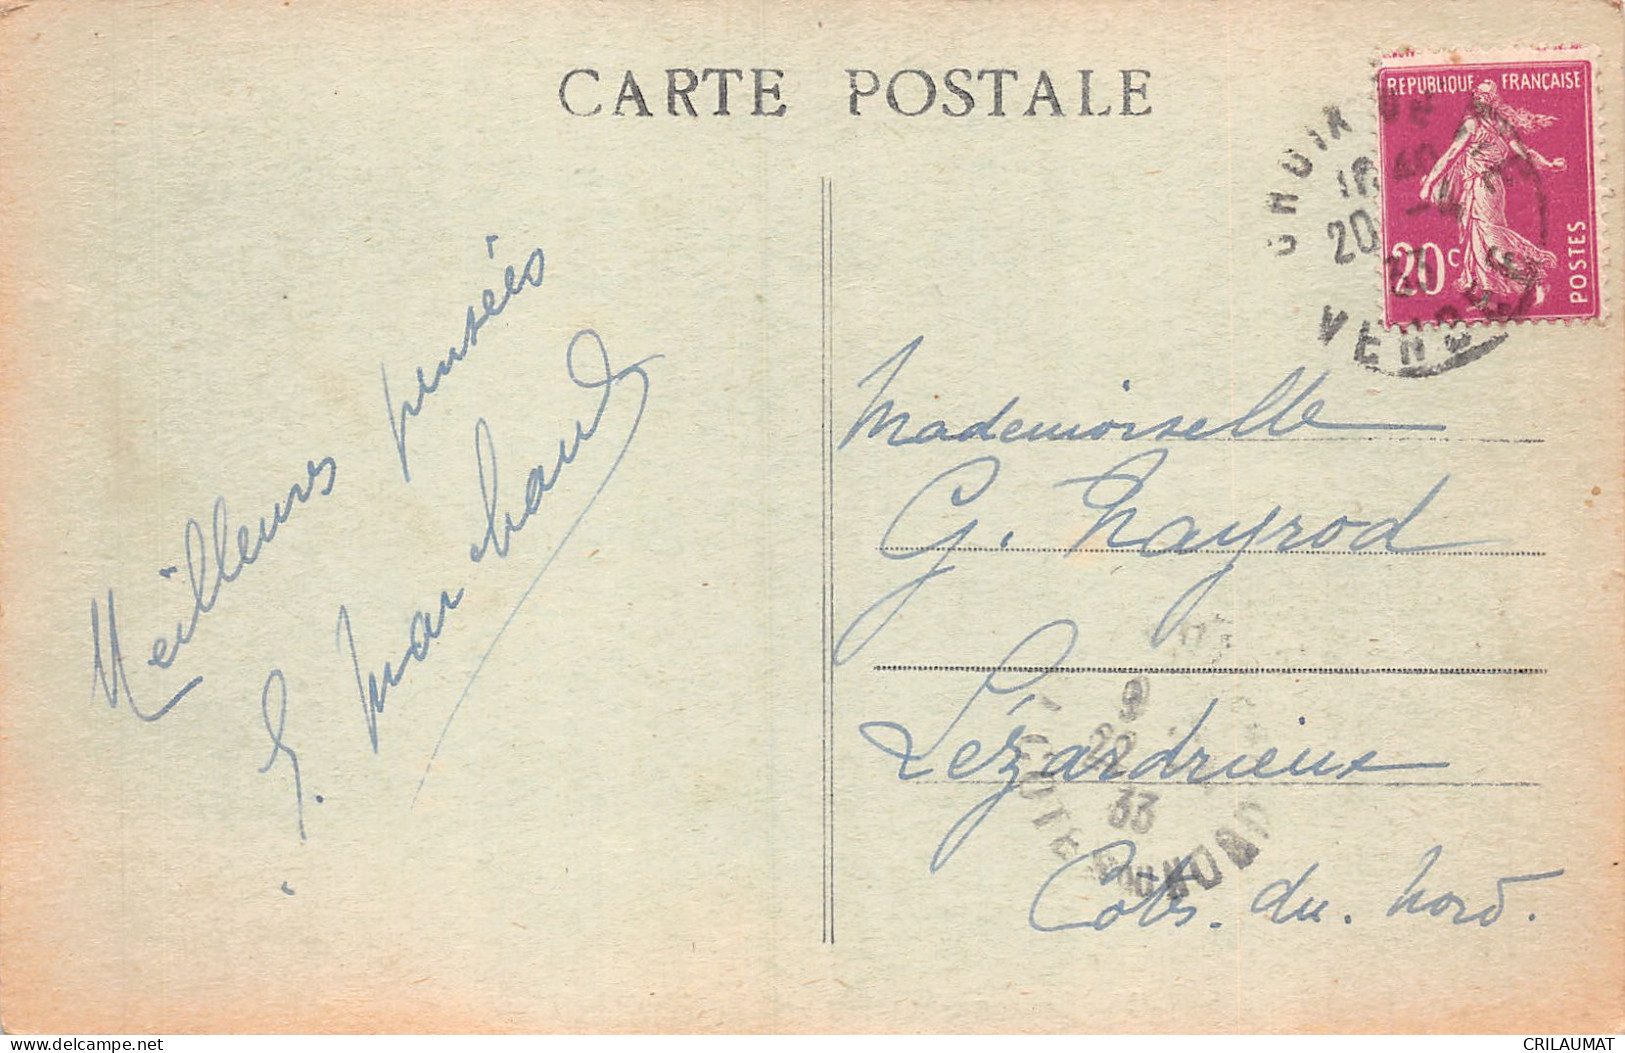 CARTE POSTALE
REPUBLIQUE FRANÇAISE
20c
POSTES
CROIX DE VIE
20 -4
33
VENDEE
Meilleures pensées
G. Marchand
Mademoiselle
G. Mayrod
Lézardrieux
Côtes. du. Nord.
9
22
33
COTES DU NORD
delcampe.net
CRILAUMAT